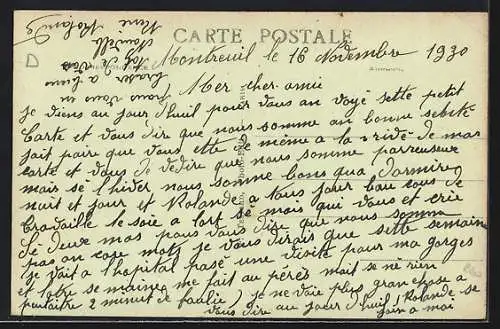 CARTE POSTALE
Montreuil le 16 Novembre 1930
Mer cher amie
je viens au jour d'huil pour vous an voyé sette petit
Carte et vous dire que nous somme au bonne
fait paire que vous ette de même a la
carte et vous dire que nous somme parreuseuse
mais sé l'hiver nous somme bons qua dormire
nuit et jour et Rolande a tous jour
travaille le soie a fort se mois qui vous et crie
sé deux mos pour vous dire que nous somme
pas an core mots je vous dirais que sette semaine
je vait a l'hopital pasé une visite pour ma gorges
et l'otre semaine me fait au pérés mait se né rien
2 minut de je ne voie plus gran chose a
vous dire au jour d'huil Rolande se
join a moi
nous
Rolande